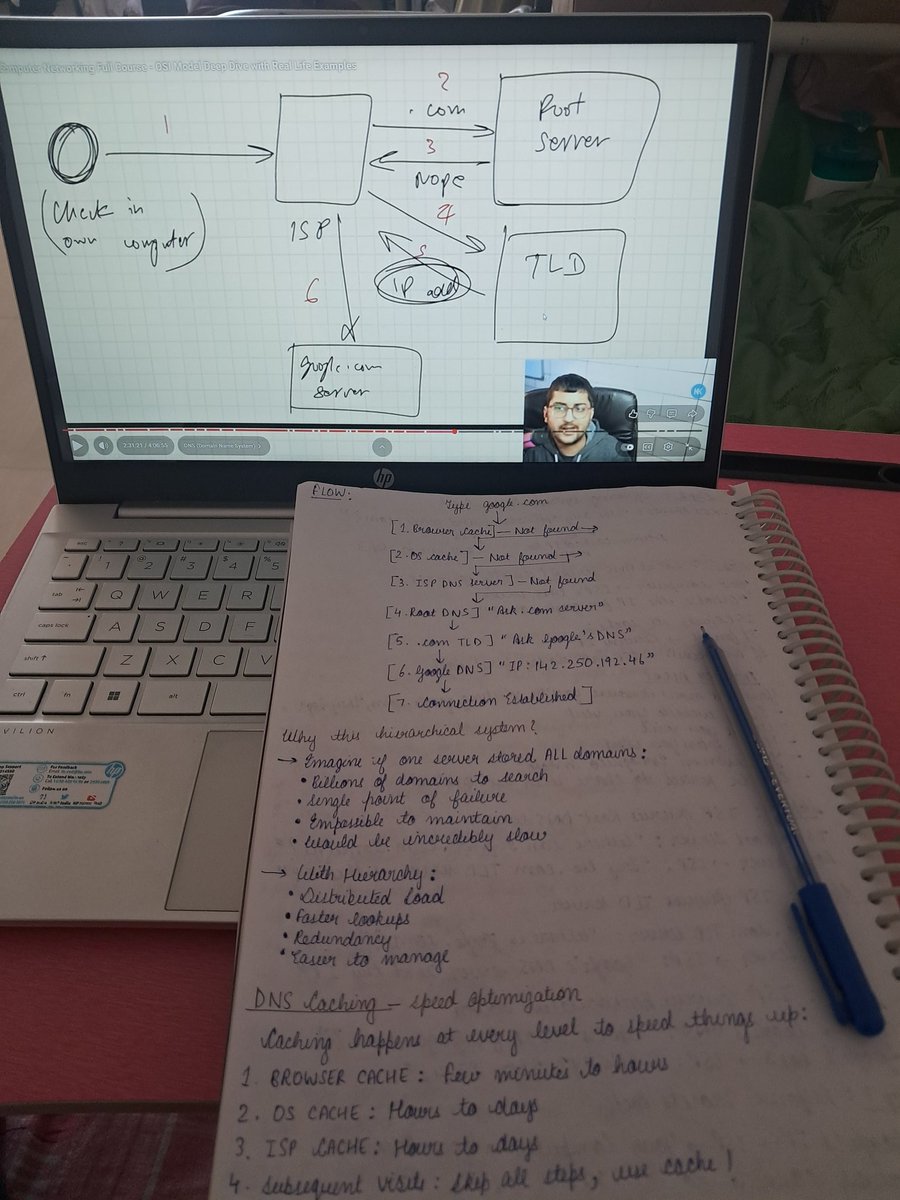 Computer Networking Full Course - OSI Model Deep Dive with Real Life Examples
1
2
.com
Root
Server
3
Nope
(Check in
own computer)
ISP
4
5
IP add
TLD
6
google.com
server
2:31:21 / 4:06:55
DNS (Domain Name System)
hp
FLOW:
Type google.com
[1. Browser cache] — Not found →
[2. OS cache] — Not found →
[3. ISP DNS server] — Not found
[4. Root DNS] "Ask .com server"
[5. .com TLD] "Ask Google's DNS"
[6. Google DNS] "IP: 142.250.192.46"
[7. Connection Established]
Why this hierarchical system?
→ Imagine if one server stored ALL domains:
• Billions of domains to search
• Single point of failure
• Empossible to maintain
• Would be incredibly slow
→ With Hierarchy:
• Distributed Load
• Faster lookups
• Redundancy
• Easier to manage
DNS Caching – speed optimization
Caching happens at every level to speed things up:
1. BROWSER CACHE: Few minutes to hours
2. OS CACHE: Hours to days
3. ISP CACHE: Hours to days
4. Subsequent visits: Skip all steps, use cache!
esc
! 1
@ 2
# 3
$ 4
% 5
tab
Q W E R
caps lock
A S D F
shift
Z X C V
ctrl
fn
alt
VILION
For Feedback
Follow us on